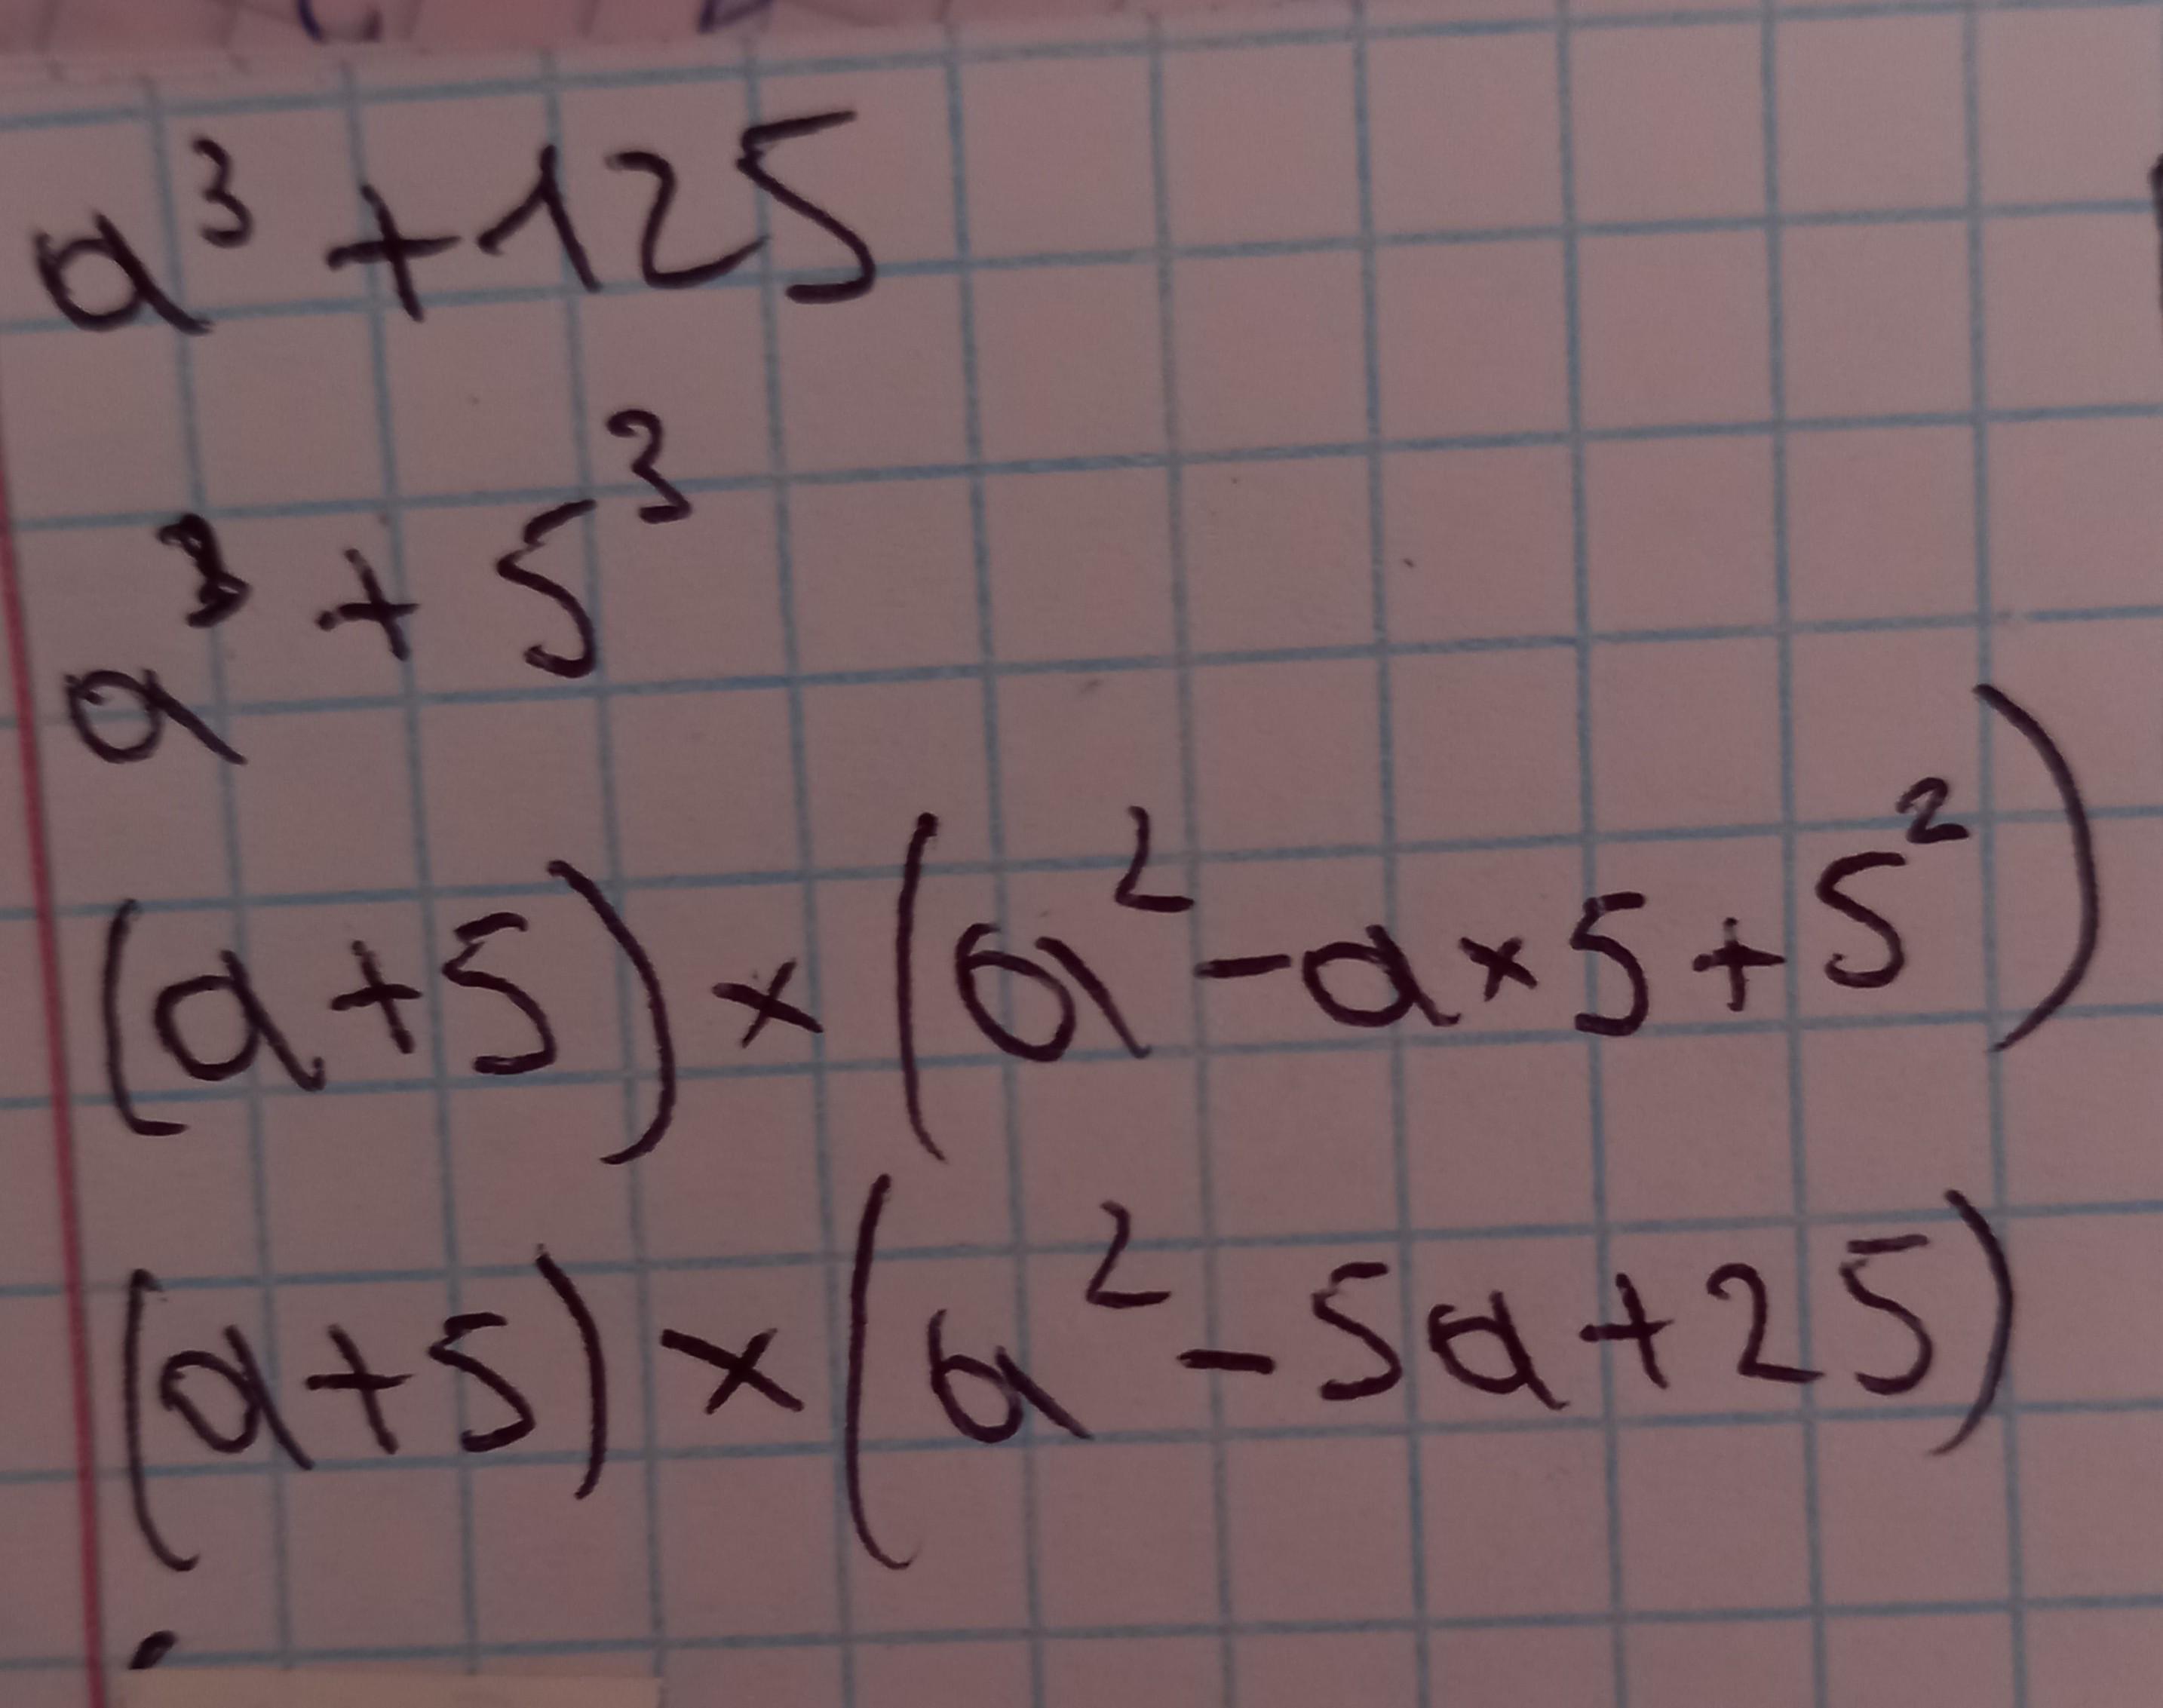 a³ + 125
a³ + 5³
(a + 5) × (a² - a × 5 + 5²)
(a + 5) × (a² - 5a + 25)